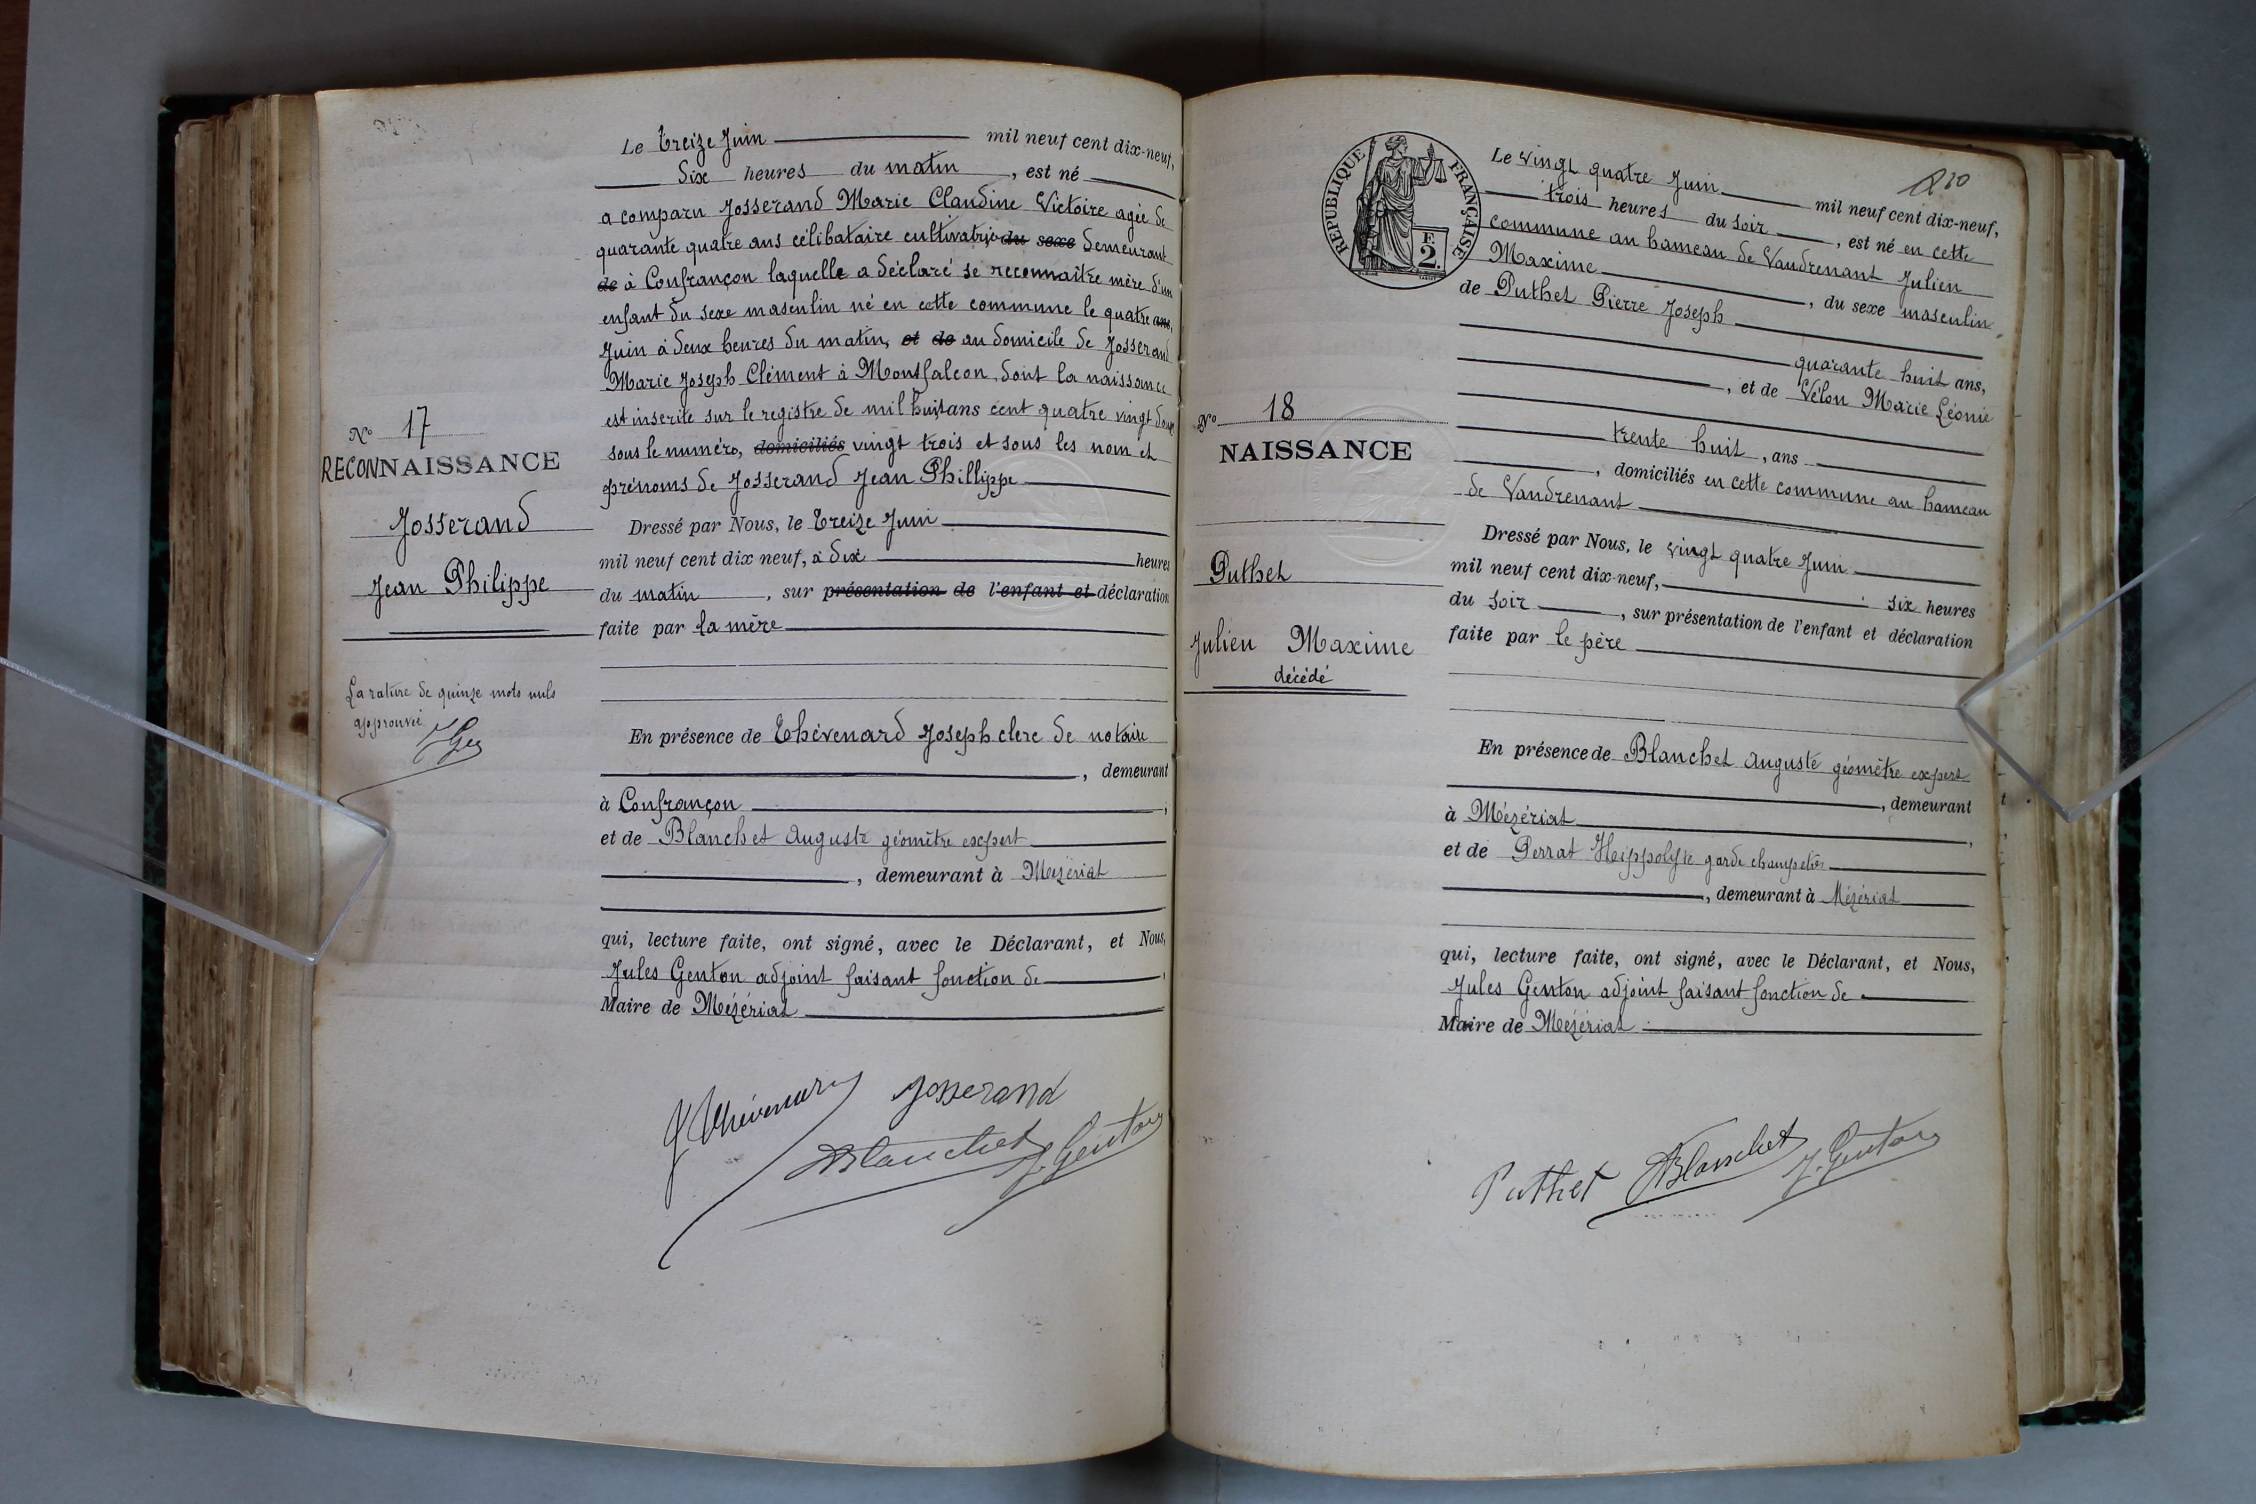 Le treize Juin mil neuf cent dix-neuf,
dix heures du matin, est né
a comparu Josserand Marie Claudine Victoire agée de
quarante quatre ans célibataire cultivatrice du sexe demeurant
de à Confrançon laquelle a déclaré se reconnaître mère d'un
enfant du sexe masculin né en cette commune le quatre ans,
Juin à deux heures du matin, et de au domicile de Josserand
Marie Joseph Clément à Montfalcon, dont la naissance
est inscrite sur le registre de mil huit ans cent quatre vingt douze
sous le numéro, domiciliés vingt trois et sous les nom et
prénoms de Josserand Jean Phillippe
Dressé par Nous, le treize Juin
mil neuf cent dix neuf, à dix heures
du matin, sur présentation de l'enfant et déclaration
faite par la mère
En présence de Thévenard Joseph clerc de notaire
, demeurant
à Confrançon,
et de Blanchet Auguste géomètre expert
, demeurant à Mézériat
qui, lecture faite, ont signé, avec le Déclarant, et Nous,
Jules Genton adjoint faisant fonction de,
Maire de Mézériat
J Thévenard Josserand
ABlanchet J. Genton
N° 17
RECONNAISSANCE
Josserand
Jean Philippe
La rature de quinze mots nuls
approuvée
Le vingt quatre Juin mil neuf cent dix-neuf,
trois heures du soir, est né en cette
commune au hameau de Vaudrenant Julien
Maxime, du sexe masculin
de Puthet Pierre Joseph
quarante huit ans,
, et de Vélon Marie Léonie
trente huit, ans
, domiciliés en cette commune au hameau
de Vaudrenant
Dressé par Nous, le vingt quatre Juin
mil neuf cent dix-neuf, six heures
du soir, sur présentation de l'enfant et déclaration
faite par le père
En présence de Blanchet Auguste géomètre expert
, demeurant
à Mézériat,
et de Perrat Hippolyte garde champetre
, demeurant à Mézériat
qui, lecture faite, ont signé, avec le Déclarant, et Nous,
Jules Genton adjoint faisant fonction de
Maire de Mézériat
Puthet ABlanchet J. Genton
N° 18
NAISSANCE
Puthet
Julien Maxime
décédé
RÉPUBLIQUE FRANÇAISE
F.
2.